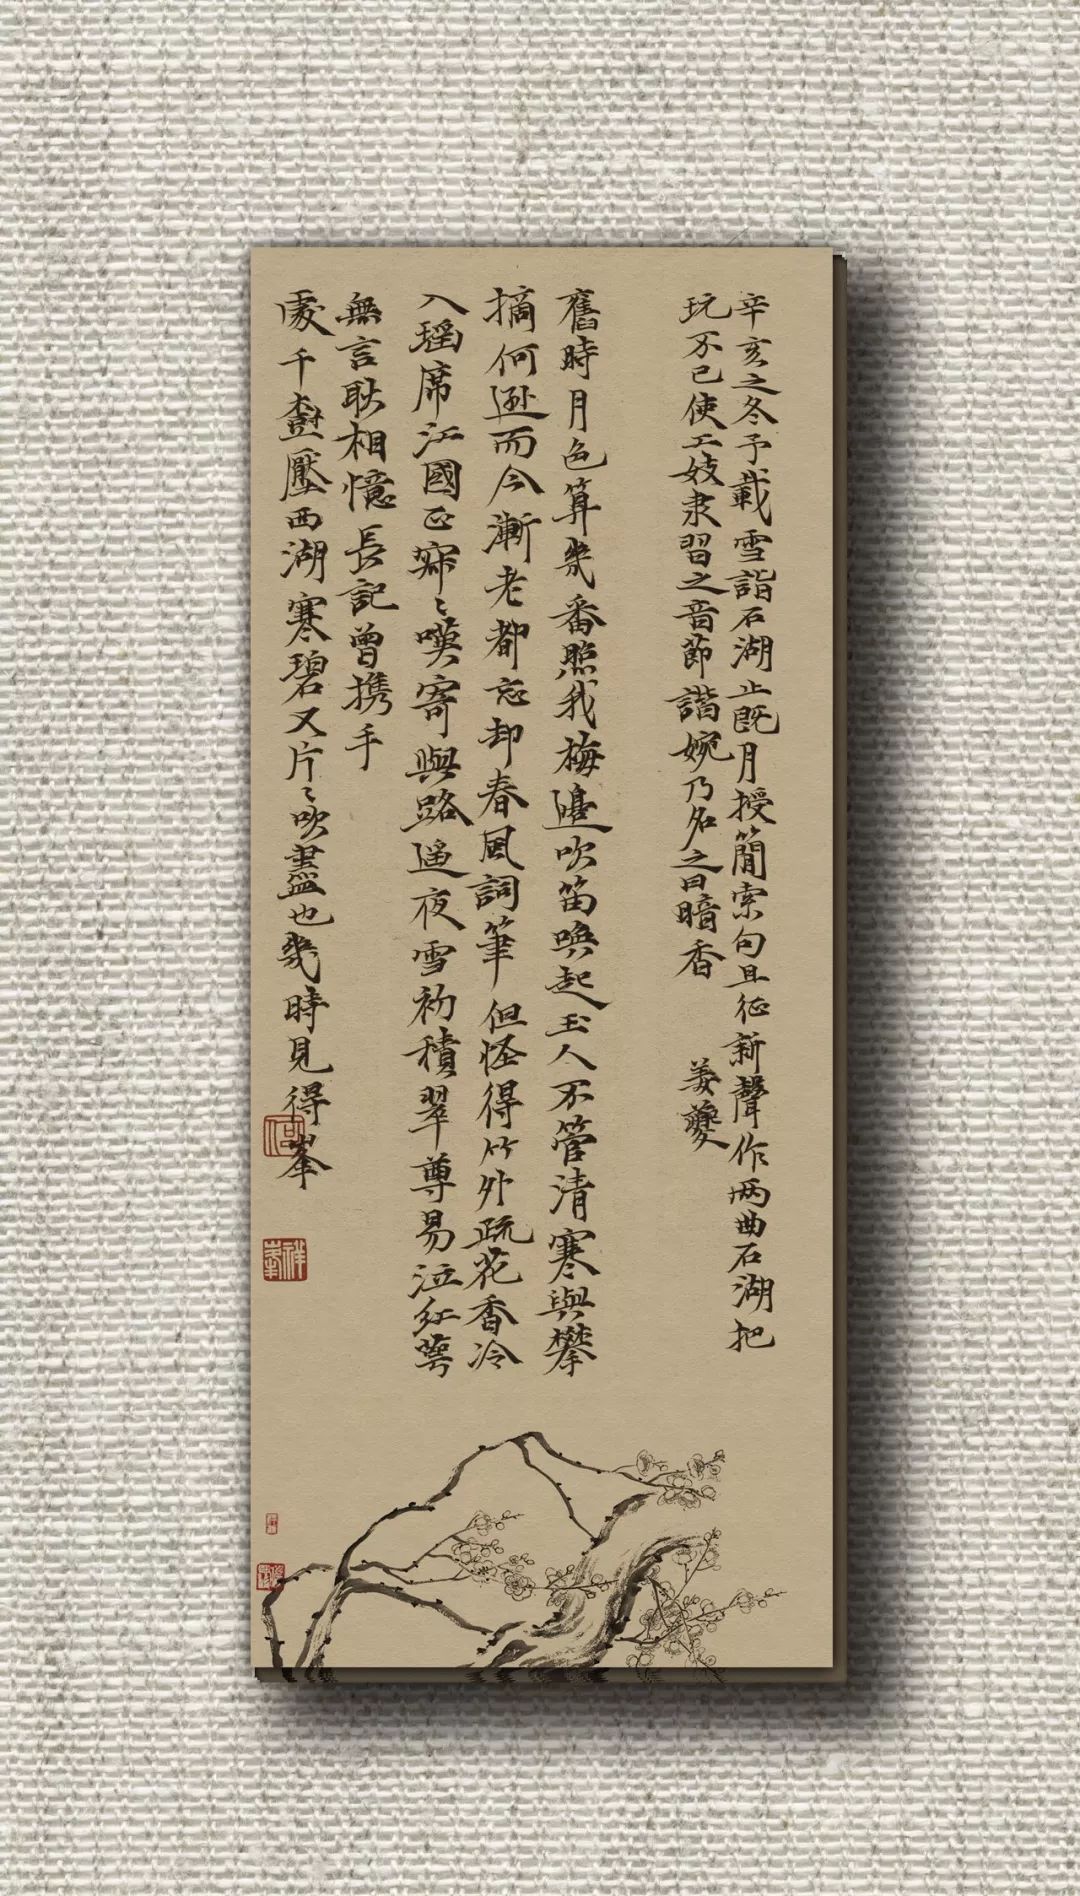 辛亥之冬予載雪詣石湖止既月授簡索句且征新聲作两曲石湖把
玩不已使工妓隶習之音節諧婉乃名之曰暗香 姜夔
舊時月色算幾番照我梅邊吹笛喚起玉人不管清寒與攀
摘何遜而今漸老都忘却春風詞筆但怪得竹外疏花香冷
入瑶席江國正寂〻嘆寄與路遥夜雪初積翠尊易泣紅萼
無言耿相憶長記曾携手
處千樹壓西湖寒碧又片〻吹盡也幾時見得 峯